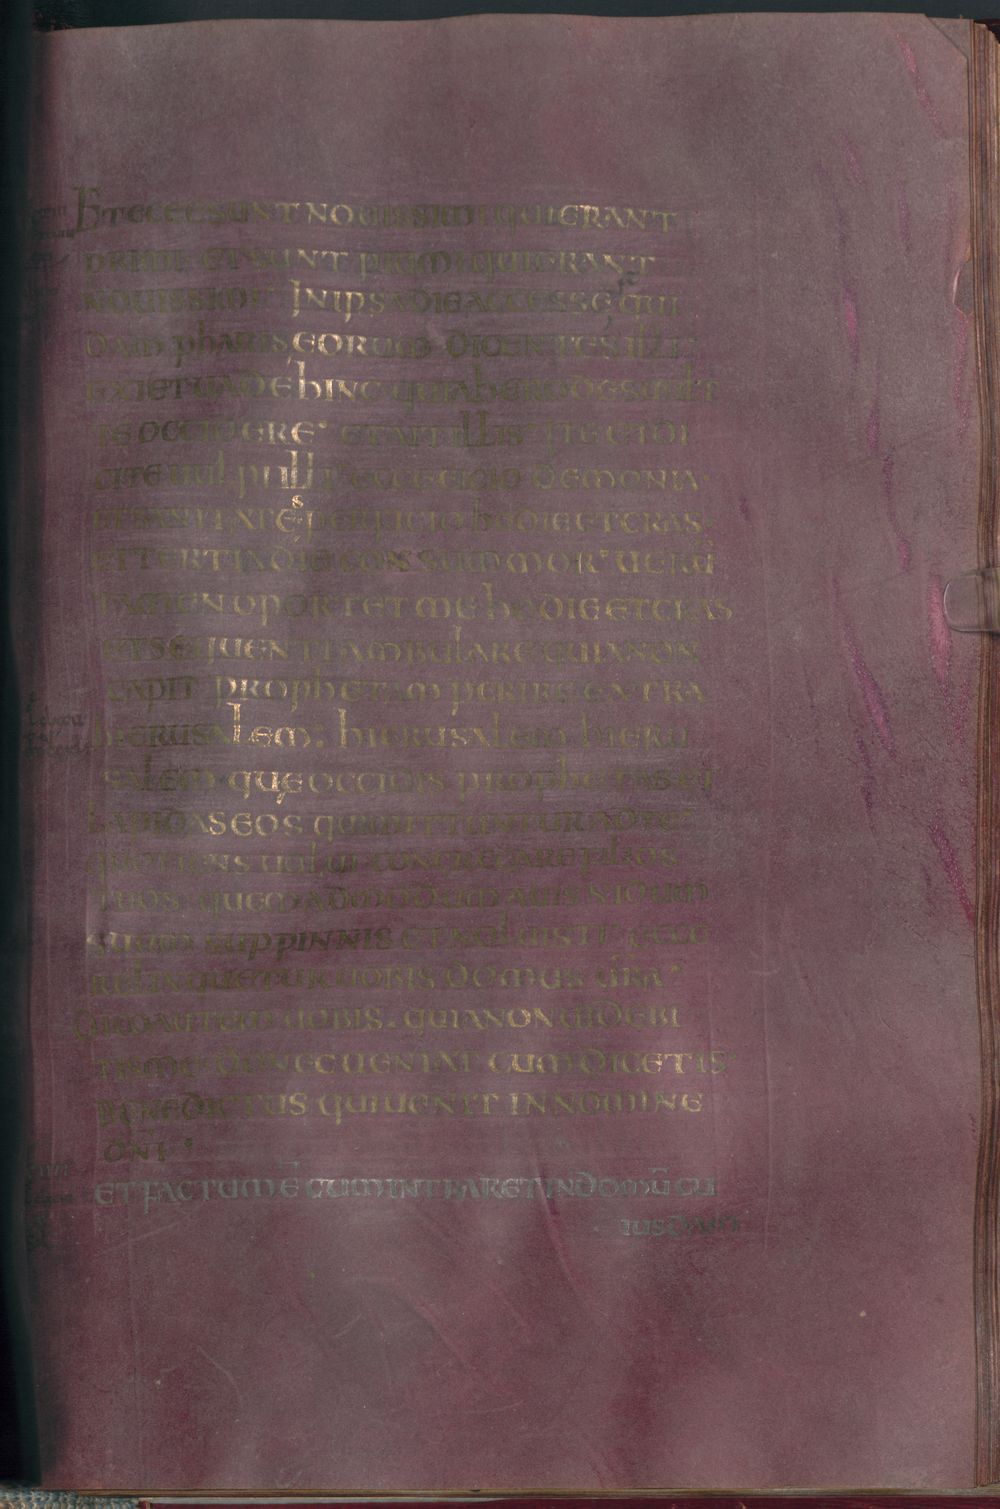 Et ecce sunt novissimi qui erant
primi et sunt primi qui erant
novissimi· In ipsa die accesserunt qui
dam pharisęorum dicentes illi·
Exi et vade hinc quia herodes vult
te occidere· Et ait illis· Ite et di
cite vulpi illi· ecce eicio demonia
et sanitates perficio hodie et cras
et tertia die consummor· Verū
tamen oportet me hodie et cras
et sequenti ambulare quia non
capit prophetam perire extra
hierusalem: hierusalem hieru
salem· quę occidis prophetas et
lapidas eos qui mittuntur ad te·
quotiens volui congregare filios
tuos· quemadmodum avis nidum
suum sub pinnis et noluisti· Ecce
relinquetur vobis domus v̄ra·
Dico autem vobis· quia non videbi
tis me donec veniat cum dicetis·
Benedictus qui venit in nomine
dn̄i·
Et factum ē cum intraret in domū cu
iusdam